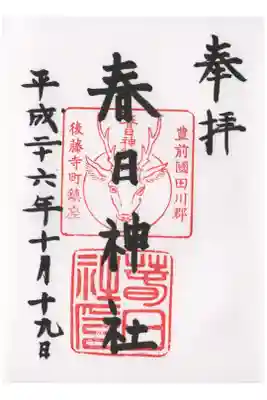 奉拝
豊前國田川郡
春日神社
春日神社
後藤寺町鎮座
春日社印
平成二十六年十月十九日